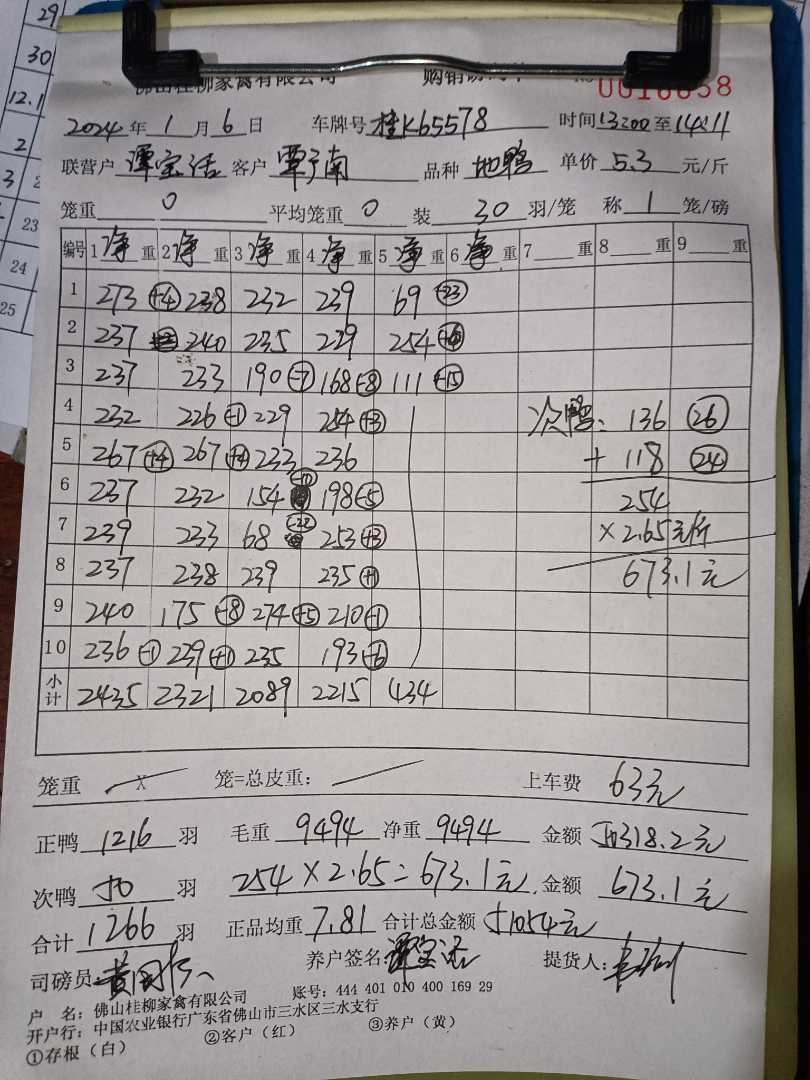 29
30
12.1
2
3
23
24
25
佛山桂柳家禽有限公司 购销
2024年1月6日 车牌号桂K65578 时间13200至14211
联营户 谭宝活 客户 覃于南 品种 地鸭 单价5.3元/斤
笼重 0 平均笼重 0 装 30 羽/笼 称 1 笼/磅
编号 1净重 2净重 3净重 4净重 5净重 6净重 7 重 8 重 9 重
1 273 +4 238 232 239 69 -23
2 237 240 235 239 254
3 237 233 190 -7 168 -8 111 -15
4 232 226 -1 229 254 +3 次鸭: 136 26
5 267 +4 267 +4 233 236 + 118 24
6 237 232 154 -10 198 -5 254
7 239 233 68 -22 253 +3 ×2.65元/斤
8 237 238 239 235 +1 673.1元
9 240 175 -8 274 +5 210 -1
10 236 -1 239 +1 235 193 -6
小计 2435 2321 2089 2215 434
笼重 X 笼=总皮重: 上车费 63元
正鸭 1216 羽 毛重 9494 净重 9494 金额 50318.2元
次鸭 50 羽 254×2.65=673.1元 金额 673.1元
合计 1266 羽 正品均重 7.81 合计总金额 51054元
司磅员 养户签名 谭宝活 提货人:
户 名: 佛山桂柳家禽有限公司 账号: 444 401 010 400 169 29
开户行: 中国农业银行广东省佛山市三水区三水支行
①存根（白） ②客户（红） ③养户（黄）